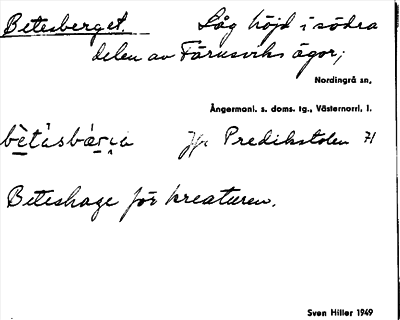 Betesberget. Låg höjd i södra
delen av Färusviks ägor;
Nordingrå sn,
Ångermanl. s. doms. tg., Västernorrl. l.
Jfr Predikstolen 71
Beteshage för kreaturen.
Sven Hiller 1949